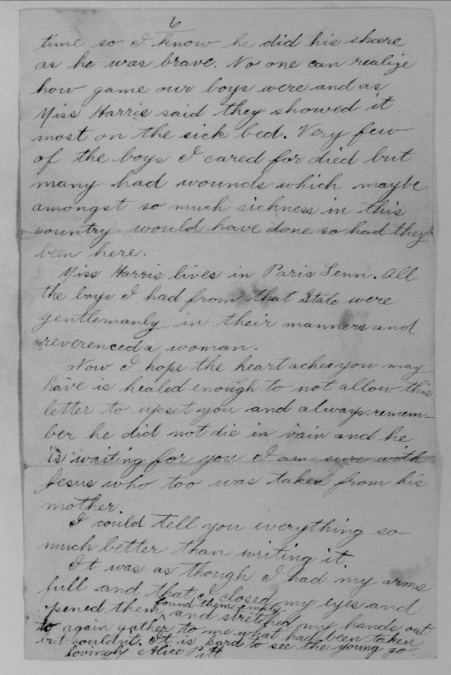 6
time so I know he did his share
as he was brave. No one can realize
how game our boys were and as
Miss Harris said they showed it
most on the sick bed. Very few
of the boys I cared for died but
many had wounds which maybe
amongst so much sickness in this
country would have done so had they
been here.
Miss Harris lives in Paris Tenn. All
the boys I had from that State were
gentlemanly in their manners and
reverenced a woman.
Now I hope the heart aches you may
have is healed enough to not allow this
letter to upset you and always remem-
ber he did not die in vain and he
is waiting for you I am sure with
Jesus who too was taken from his
mother.
I could tell you everything so
much better than writing it.
It was as though I had my arms
full and that I closed my eyes and
opened them found them empty and stretched my hands out
to again gather to me what had been taken
but couldn't. It is hard to see the young go.
Lovingly Alice